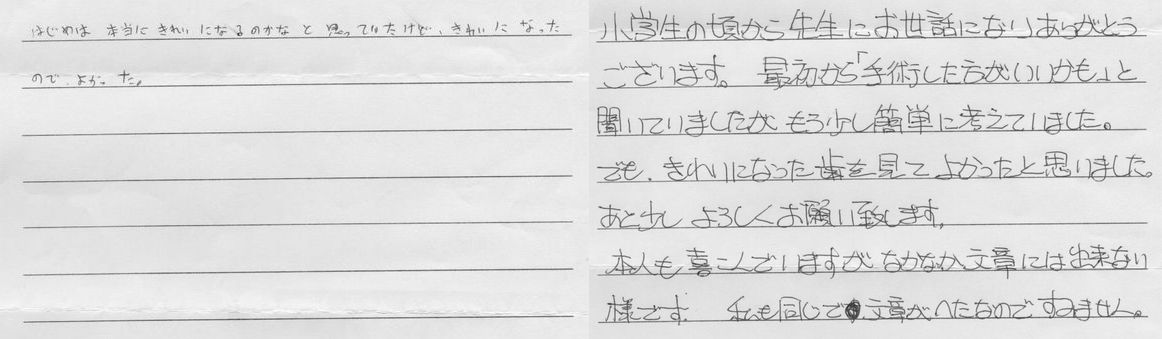 はじめは 本当に きれいになるのかな と 思っていたけど、きれいに なった
ので、よかった。
小学生の頃から先生にお世話になりありがとう
ございます。 最初から「手術した方がいいかも」と
聞いていましたが もう少し簡単に考えていました。
でも、きれいになった歯を見て よかったと思いました。
あと少し よろしくお願い致します。
本人も喜こんでいますが なかなか文章には出来ない
様です。 私も同じで 文章がへたなので すみません。